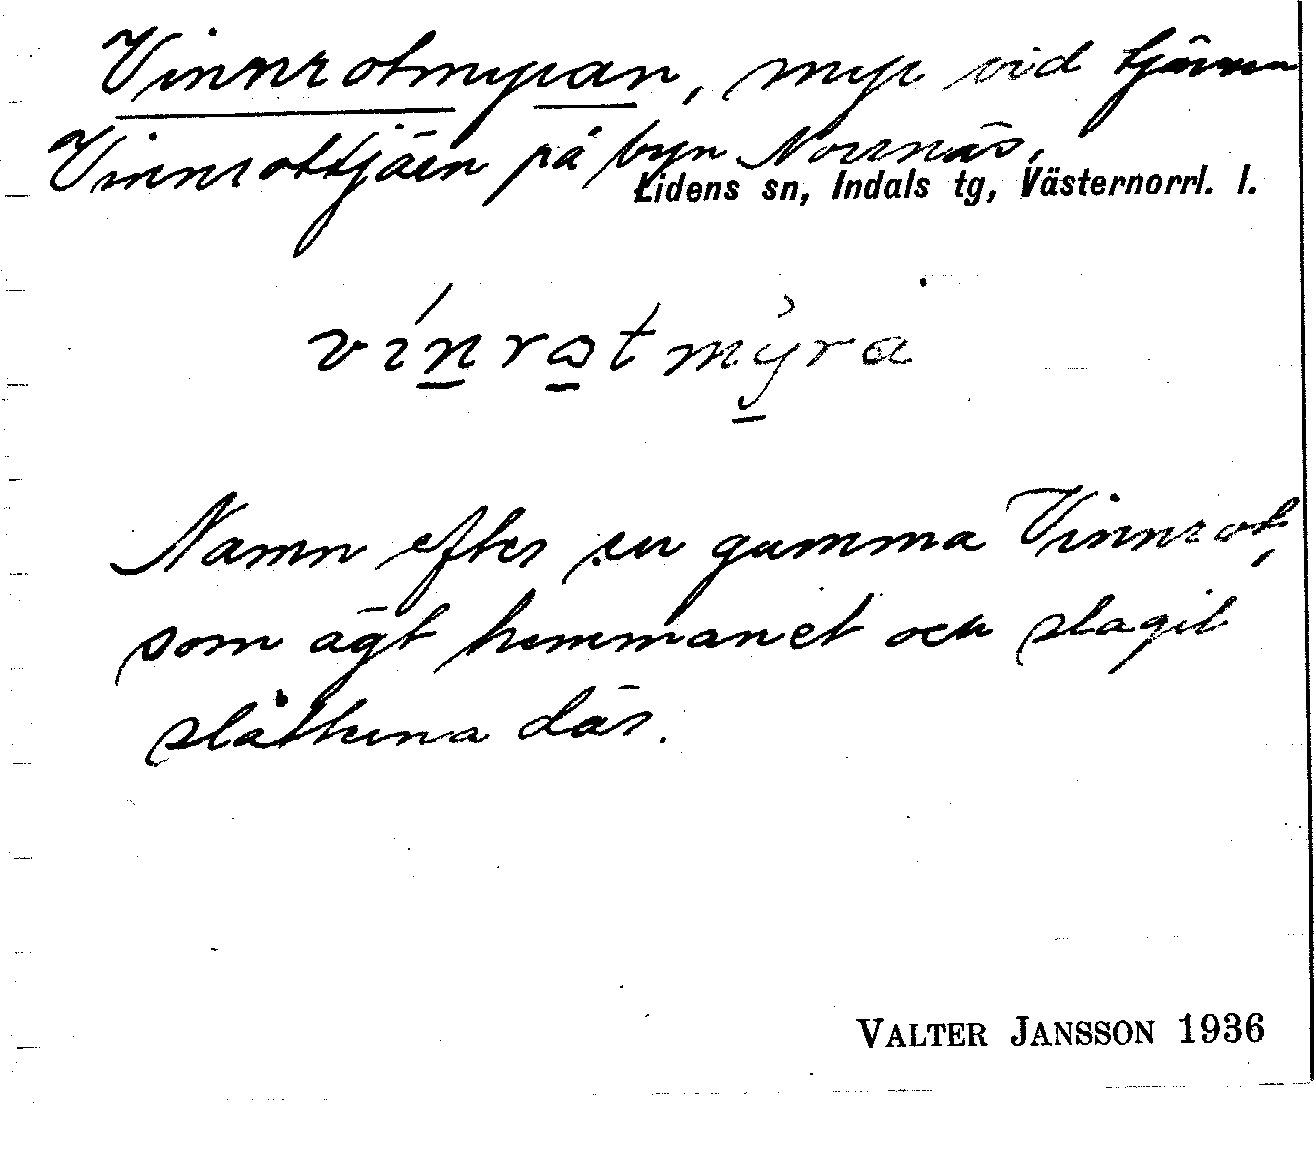 Vinnrotmyran, myr vid tjärnen
Vinnrottjärn på byn Norrnäs,
Lidens sn, Indals tg, Västernorrl. l.
vínrɷtmýra
Namn efter en gumma Vinnrot,
som ägt hemmanet och slagit
slåtterna där.
VALTER JANSSON 1936